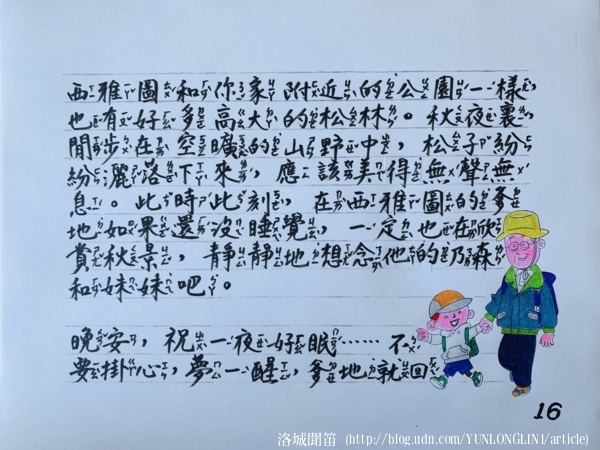 西雅圖和你家附近的公園一樣，
也有好多高大的松林。秋夜裏
閒步在空曠的山野中，松子紛
紛灑落下來，應該美得無聲無
息。此時此刻，在西雅圖的爹
地如果還沒睡覺，一定也在欣
賞秋景，靜靜地想念他的乃森
和妹妹吧。
晚安，祝一夜好眠……不
要掛心，夢一醒，爹地就回
16
洛城聞笛 (http://blog.udn.com/YUNLONGLIN1/article)